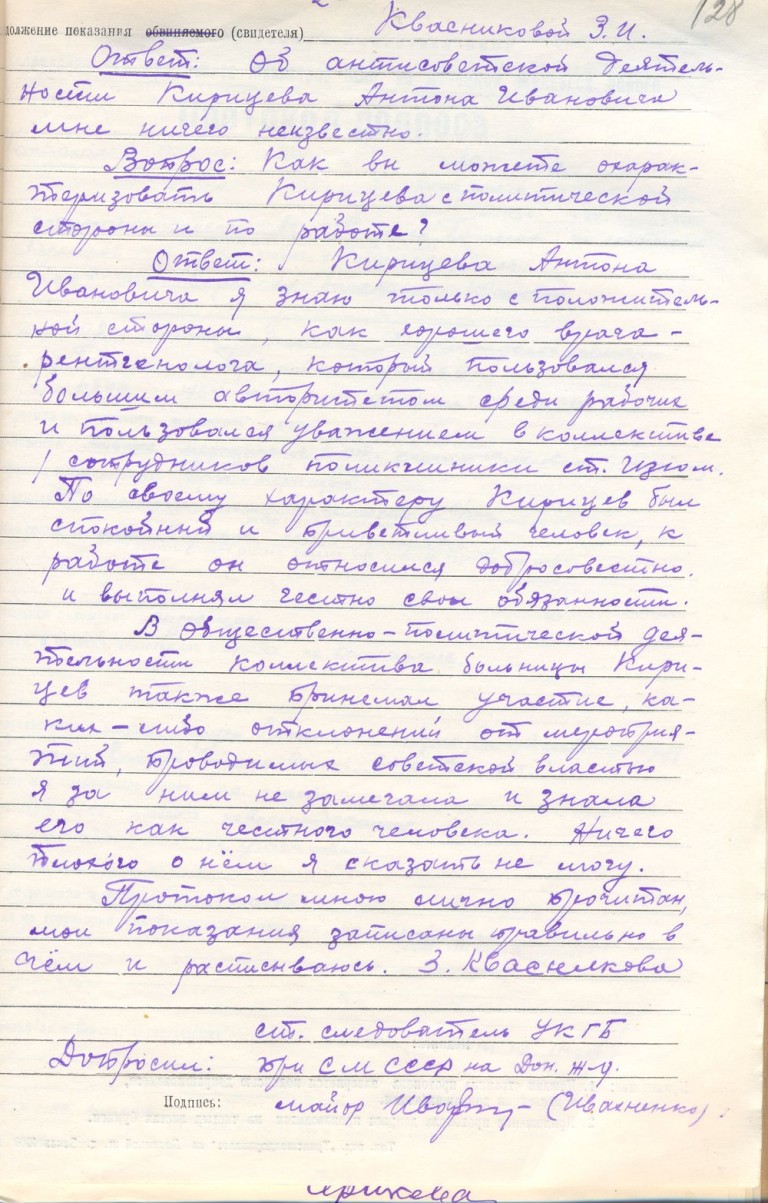 128
должение показания обвиняемого (свидетеля) Квасниковой З.И.
Ответ: Об антисоветской деятель-
ности Кирицева Антона Ивановича
мне ничего неизвестно.
Вопрос: Как вы можете охарак-
теризовать Кирицева с политической
стороны и по работе?
Ответ: Кирицева Антона
Ивановича я знаю только с положитель-
ной стороны, как хорошего врача-
рентгенолога, который пользовался
большим авторитетом среди рабочих
и пользовался уважением в коллективе
сотрудников поликлиники ст. Изюм.
По своему характеру Кирицев был
спокойный и приветливый человек, к
работе он относился добросовестно.
и выполнял честно свои обязанности.
В общественно-политической дея-
тельности коллектива больницы Кири-
цев также принимал участие, ка-
ких-либо отклонений от мероприя-
тий, проводимых советской властью
я за ним не замечала и знала
его как честного человека. Ничего
плохого о нём я сказать не могу.
Протокол мною лично прочитан,
мои показания записаны правильно в
чём и расписываюсь. З. Квасникова
ст. следователь УКГБ
Допросил: при СМ СССР на Дон. ж-д.
Подпись: майор (Ивасненко).